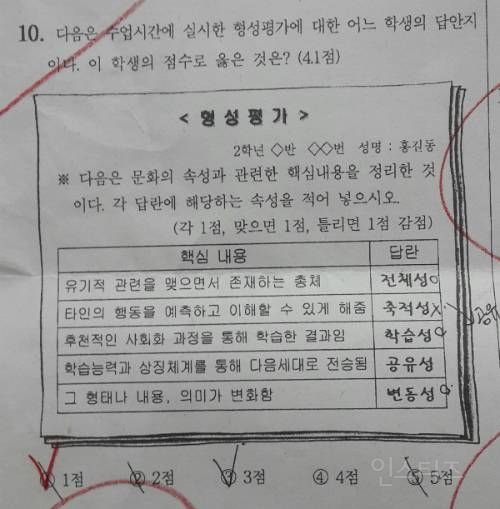 10. 다음은 수업시간에 실시한 형성평가에 대한 어느 학생의 답안지
이다. 이 학생의 점수로 옳은 것은? (4.1점)
< 형성평가 >
2학년 ◇반 ◇◇번 성명 : 홍길동
※ 다음은 문화의 속성과 관련한 핵심내용을 정리한 것
이다. 각 답란에 해당하는 속성을 적어 넣으시오.
(각 1점, 맞으면 1점, 틀리면 1점 감점)
핵심 내용 답란
유기적 관련을 맺으면서 존재하는 총체 전체성 o
타인의 행동을 예측하고 이해할 수 있게 해줌 축적성 x 공유
후천적인 사회화 과정을 통해 학습한 결과임 학습성 o
학습능력과 상징체계를 통해 다음세대로 전승됨 공유성
그 형태나 내용, 의미가 변화함 변동성 o
① 1점 ② 2점 ③ 3점 ④ 4점 ⑤ 5점
인스티즈